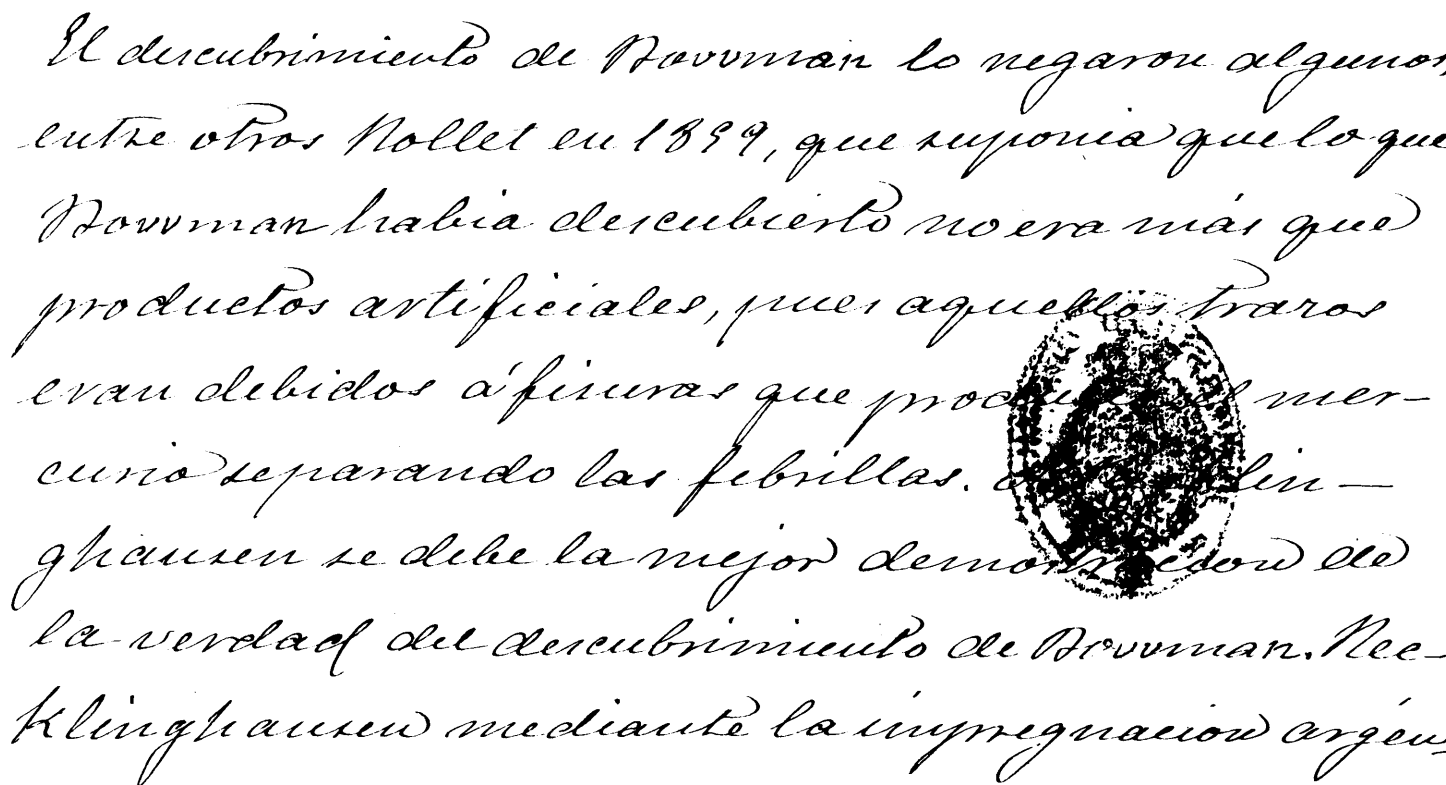 El descubrimiento de Bowman lo negaron algunos,
entre otros Rollet en 1859, que suponia que lo que
Bowman habia descubierto no era más que
productos artificiales, pues aquellos trazos
eran debidos á fisuras que el mer-
curio separando las febrillas. lin-
ghausen se debe la mejor demostracion de
la verdad del descubrimiento de Bowman. Rec-
Klinghausen mediante la impregnacion argén-